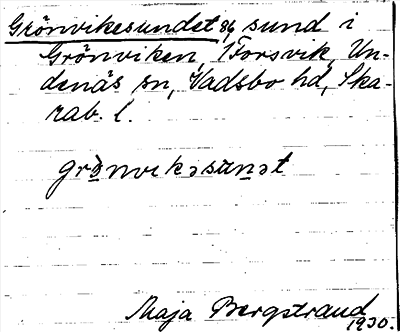 Grönvikesundet 86, sund i
Grönviken, 1 Forsvik, Un-
denäs sn, Vadsbo hd, Ska-
rab. l.
grönvikəsunət
Maja Bergstrand
1930.